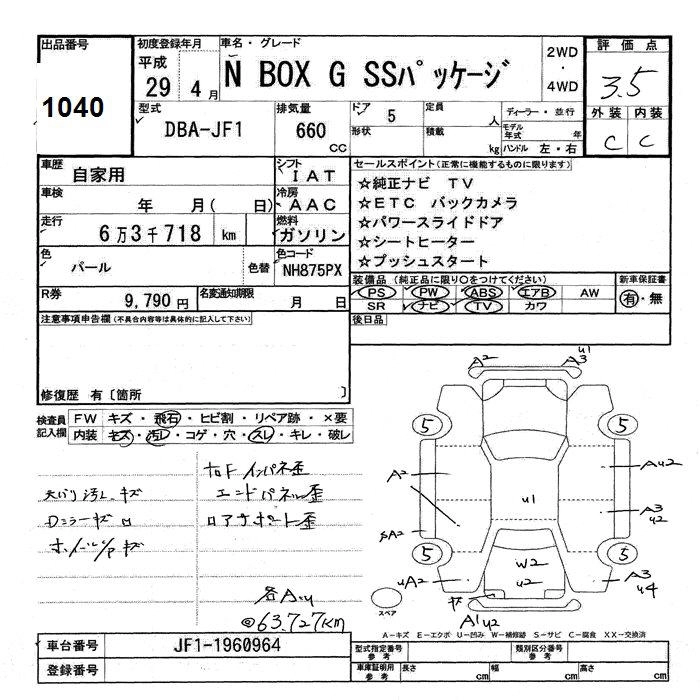 出品番号
1040
初度登録年月
平成
29年 4月
車名・グレード
N BOX G SSパッケージ
2WD
・
4WD
評価点
3.5
外装 内装
C C
型式
DBA-JF1
排気量
660
CC
ドア 5
形状
定員 人
積載 kg
ディーラー・並行
モデル年式 年
ハンドル 左・右
車歴
自家用
シフト
IAT
車検
年 月( 日)
冷房
AAC
走行
6万3千718 km
燃料
ガソリン
色
パール
色替
色コード
NH875PX
R券
9,790円
名変通知期限
月 日
セールスポイント(正常に機能するものに限ります)
☆純正ナビ TV
☆ETC バックカメラ
☆パワースライドドア
☆シートヒーター
☆プッシュスタート
装備品 (純正品に限り○をつけてください)
新車保証書
PS PW ABS エアB AW
有・無
SR ナビ TV カワ
後日品
注意事項申告欄(不具合内容等は具体的に記入して下さい)
修復歴 有〔箇所 〕
検査員
記入欄
FW キズ・飛石・ヒビ割・リペア跡・×要
内装 キズ・汚レ・コゲ・穴・スレ・キレ・破レ
インパネ歪
エンドパネル歪
天バリ汚レ キズ
Dミラーキズ
リアサポート歪
各A.u
@63.727km
A2
u1
A3
5
5
A2
Au2
u1
A3
u2
A2
5
5
W2
u2
uA2
A3
u4
キズ
A1 u2
スペア
A-キズ E-エクボ U-凹み W-補修跡 S-サビ C-腐食 XX-交換済
車台番号
JF1-1960964
登録番号
型式指定番号
参考
類別区分番号
参考
車庫証明用
参考
長さ cm
幅 cm
高さ cm